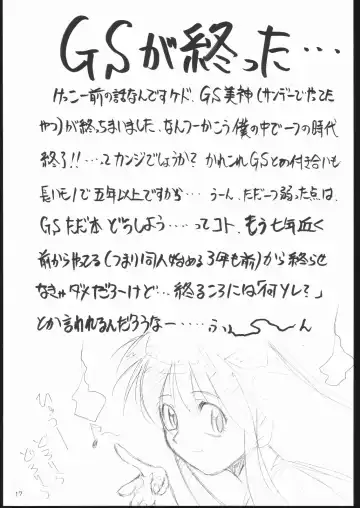 GSが終った…
けっこー前の話なんですケド、GS美神(サンデーでやてた
やつ)が終っちまいました、なんつーかこう僕の中で一つの時代
終了!!…ってカンジでしょうか?かれこれGSとの付き合いも
長いモノで五年以上ですから…うーん、ただ一つ弱った点は、
GSただ本どうしよう…ってコト、もう七年近く
前からやってる(つまり同人始める3年も前)から終らせ
なきゃダメだろーけど…終るころには「何ソレ?」
とか言われるんだろうなー…‥ふぅ〜〜ん
ひゅー
どろ
どろどろ
17